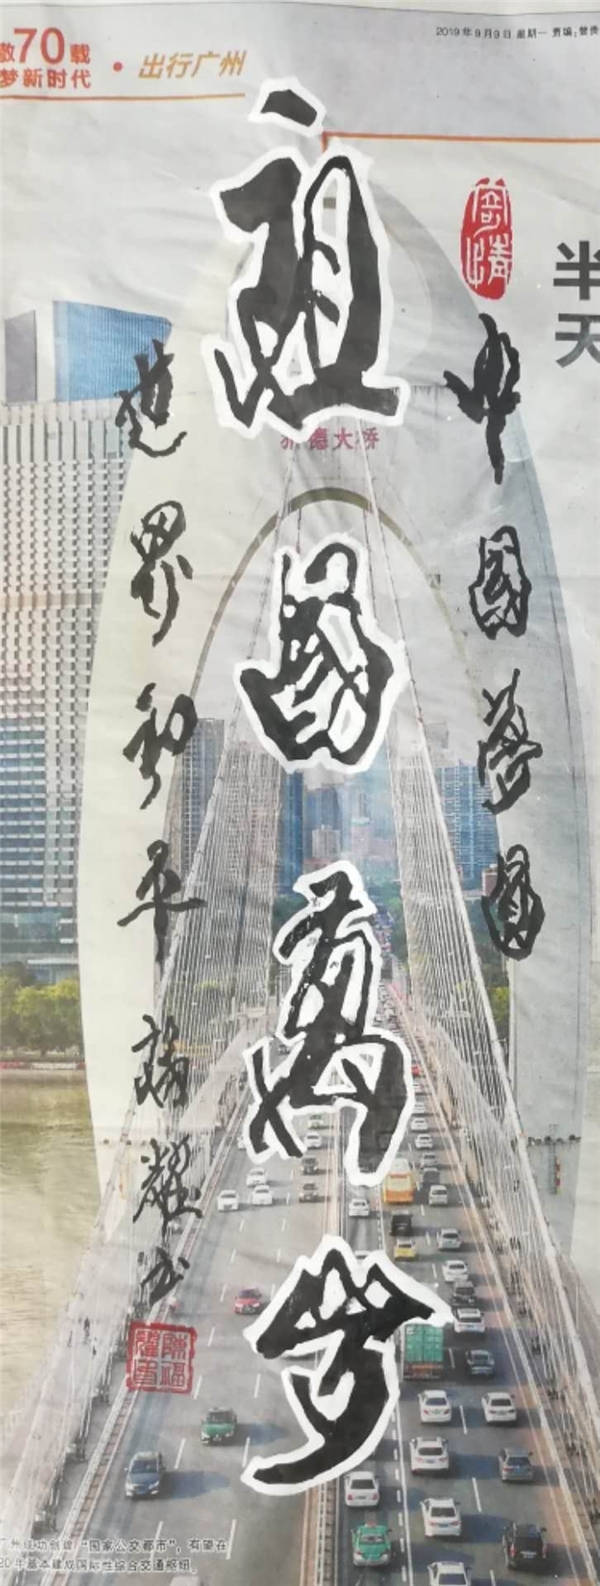 70载
梦新时代 · 出行广州
2019年9月9日 星期一 责编:
半
天
寄情
中國夢圓
祖國萬歲
世界和平
猎德大桥
广州成功创建“国家公交都市”，有望在
20年基本建成国际性综合交通枢纽。